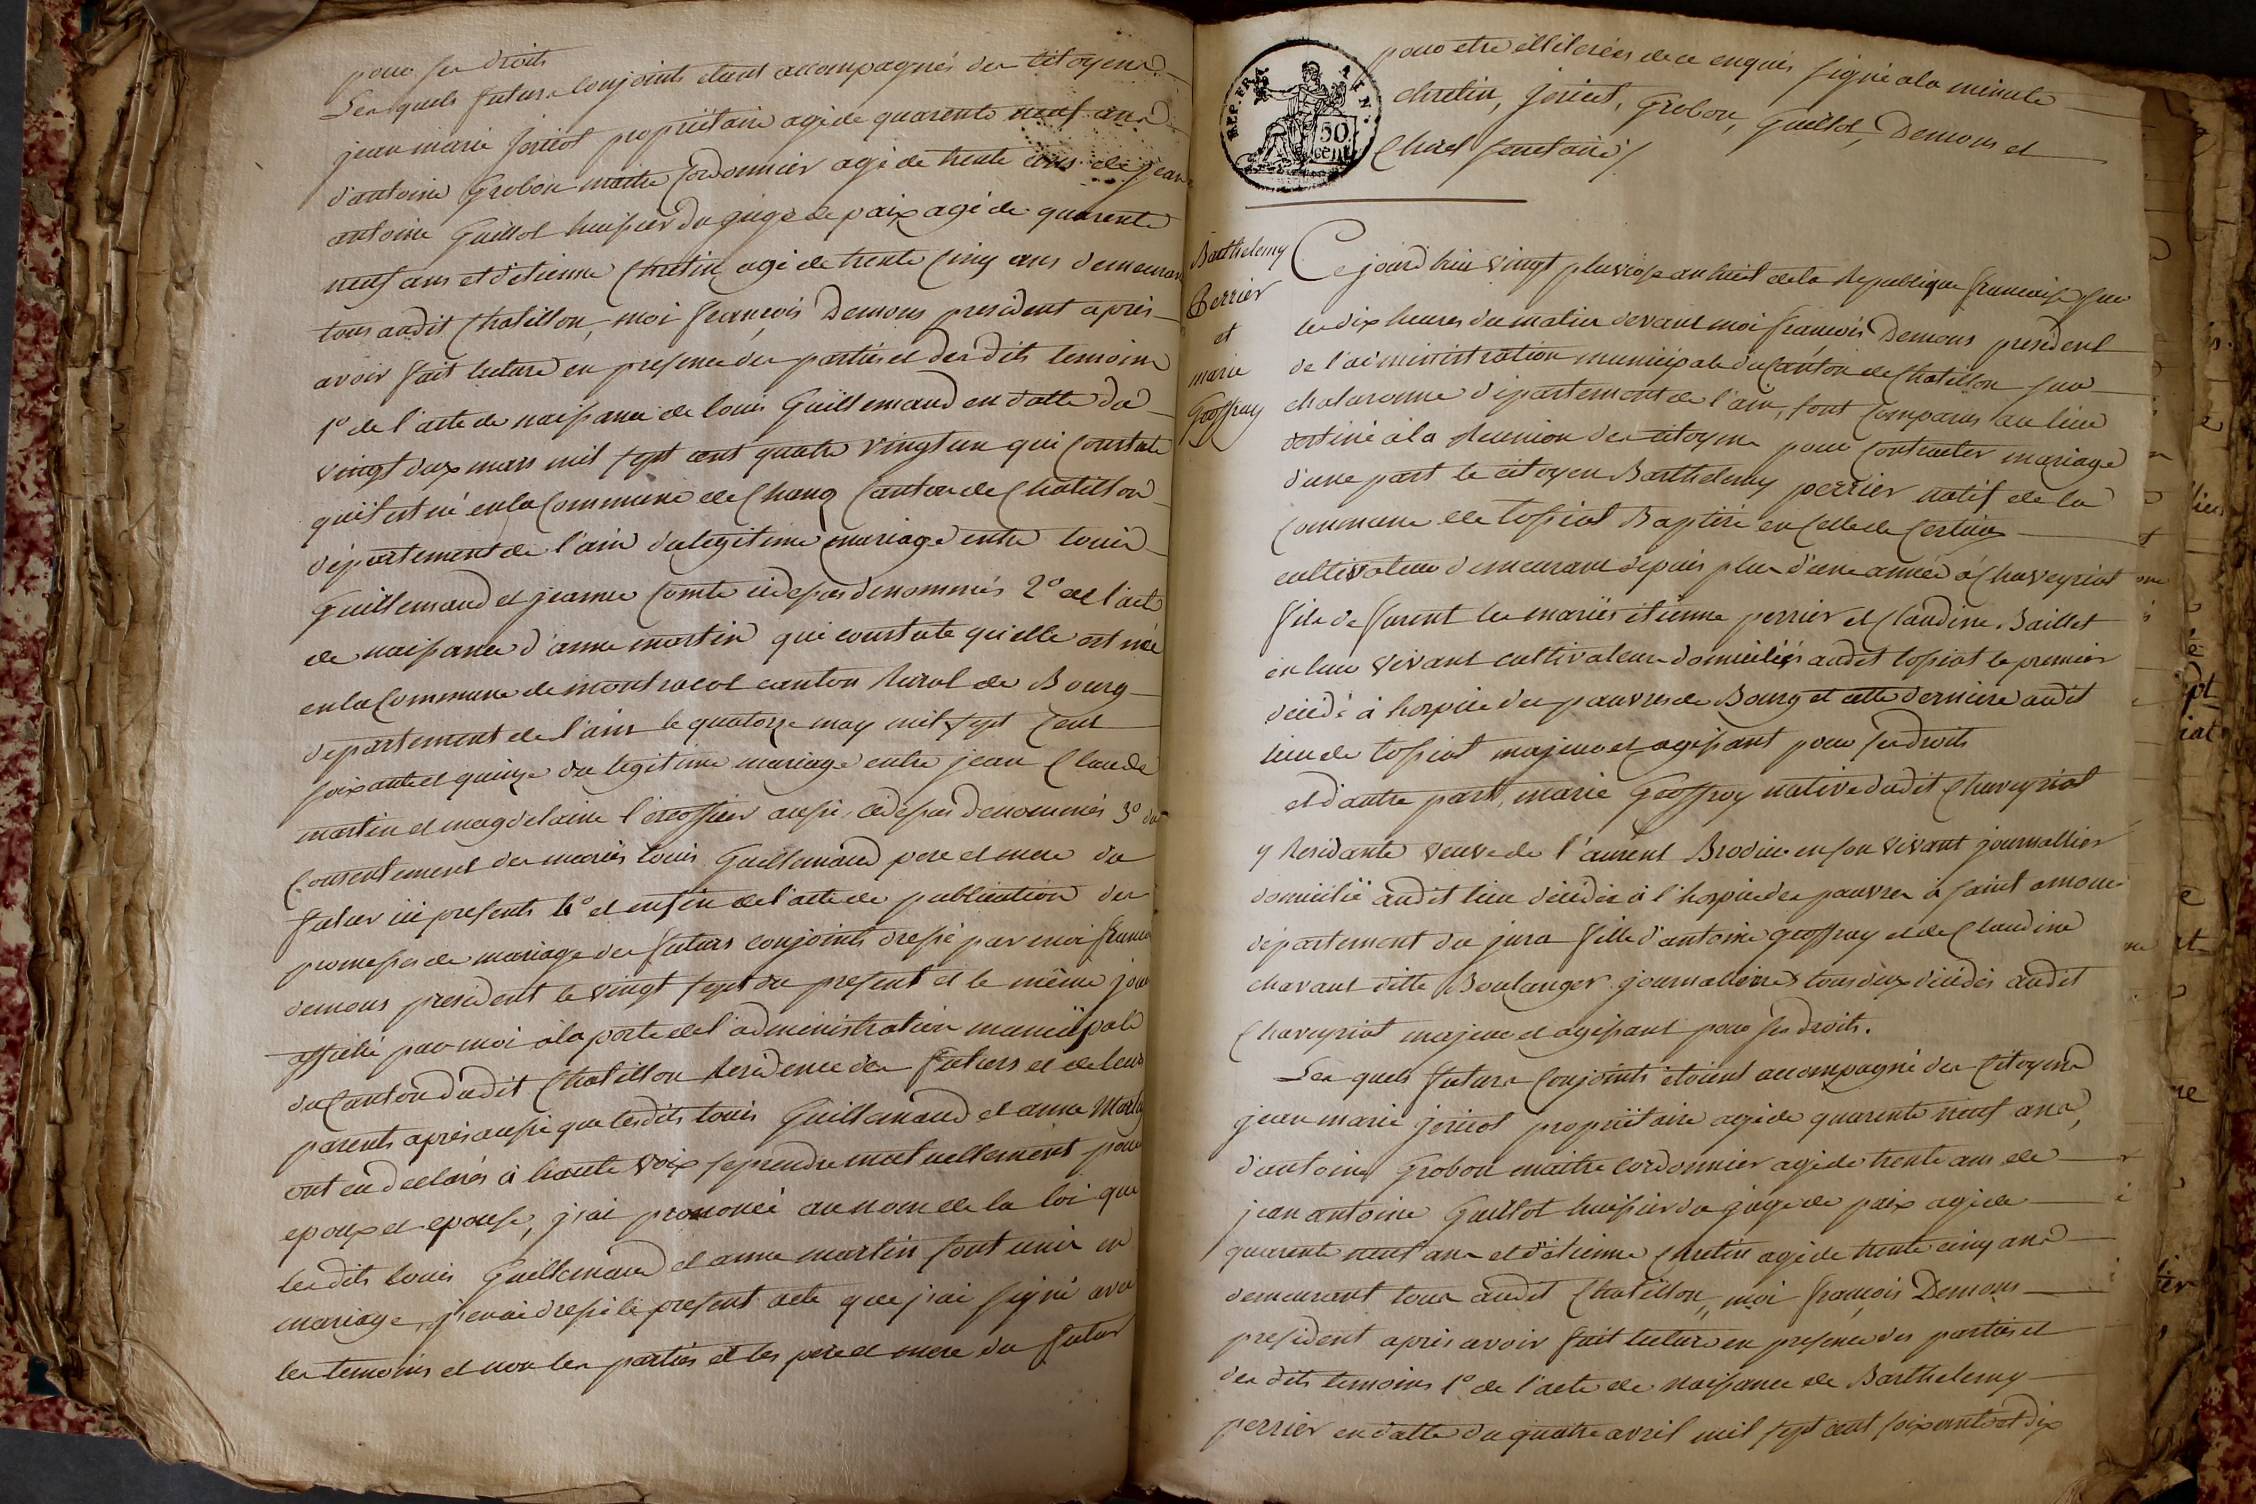 pour ses droits
Les quels futurs conjoints étant accompagnés des citoyens
jean marie joricot propriétaire agé de quarente neuf ans
d'antoine Grobon maitre cordonnier agé de trente ans de jean
antoine Guillot huissier du juge de paix agé de quarente
neuf ans et d'étienne Chretin agé de trente cinq ans demeurant
tous audit Chatillon, moi françois Demons president après
avoir fait lecture en presence des parties et des dits temoins
1° de l'acte de naissance de louis Guillemaud en datte du
vingt deux mars mil sept cent quatre vingt un qui constate
qu'il est né en la commune de Chanoz canton de Chatillon
département de l'ain du legitime mariage entre louis
Guillemaud et jeanne Comte cidessus denommés 2° de l'acte
de naissance d'anne martin qui constate qu'elle est née
en la commune de montracol canton Rural de Bourg
departement de l'ain le quatorze may mil sept cent
soixante et quinze du legitime mariage entre jean Claude
martin et magdelaine l'ecossier aussi cidessus denommés 3° du
consentement des mariés louis Guillemaud pere et mere du
futur ici presents 4° et enfin de l'acte de publication des
promesses de mariage des futurs conjoints dressé par moi françois
demons president le vingt sept du present et le même jour
affiché par moi à la porte de l'administration municipale
du Canton dudit Chatillon Residence des futurs et de leurs
parents après aussi que lesdits louis Guillemaud et anne Martin
ont eu declarés à haute voix se prendre mutuellement pour
epoux et epouse, j'ai prononcé au nom de la loi que
lesdits louis Guillemaud et anne martin sont unis en
mariage, j'en ai dressé le present acte que j'ai signé avec
les temoins et non les parties et les pere et mere du futur
REP. FRA.
50 cent.
pour etre illiterés de ce enquis signé a la minute
chretin, joricot, Grobon, Guillot, Demons et
secretaire
Barthelemy
Perrier
et
marie
Geoffray
Ce jourd'hui vingt pluviose an huit de la Republique francaise sur
les dix heures du matin devant moi françois Demons president
de l'administration municipale du Canton de Chatillon sur
chalaronne département de l'ain, sont comparus au lieu
destiné à la Reunion des citoyens pour contracter mariage
d'une part le citoyen Barthelemy perrier natif de la
commune de tossiat Baptisé en celle de Certines
cultivateur demeurant depuis plus d'une année à Chaveyriat
fils de furent les mariés étienne perrier et Claudine Baillet
en leur vivant cultivateurs domiciliés audit tossiat le premier
décédé à hospice des pauvres de Bourg et cette derniere audit
lieu de tossiat majeur et agissant pour ses droits
et d'autre part, marie Geoffroy native dudit Chaveyriat
y Residante veuve de l'aurent Brodin en son vivant journallier
domicilié audit lieu décédé à l'hospice des pauvres à saint amour
département du jura fille d'antoine geoffray et de Claudine
chavant ditte Boulanger journalliers tous deux décédés audit
Chaveyriat majeur et agissant pour ses droits.
Les quels futurs conjoints étoient accompagné des Citoyens
jean marie joricot propriétaire agé de quarente neuf ans,
d'antoine Grobon maitre cordonnier agé de trente ans de
jean antoine Guillot huissier du juge de paix agé de
quarente neuf ans et d'étienne Chretin agé de trente cinq ans
demeurant tous audit Chatillon, moi françois Demons
president après avoir fait lecture en presence des parties et
des dits temoins 1° de l'acte de naissance de Barthelemy
perrier en datte du quatre avril mil sept cent soixante et dix